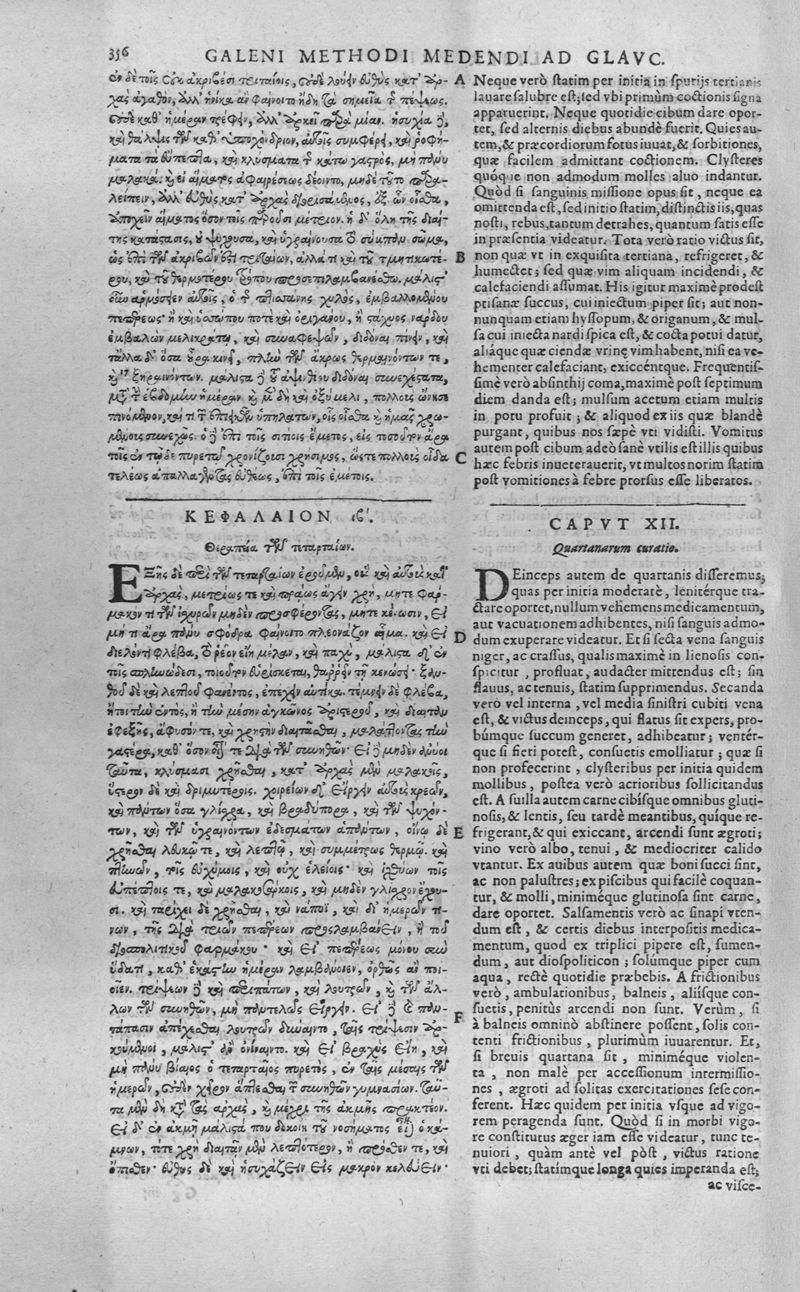 336
GALENI METHODI MEDENDI AD GLAVC.
ἐν δὲ τοῖς οὐκ ἀκριβέσι τριταίοις, οὐδὲ λούειν εὐθὺς κατ' ἀρ-
χὰς ἀγαθὸν, ἀλλ' ἡνίκα ἂν φαίνοιτο ἤδη τὰ σημεῖα τῆς πέψεως.
οὐδὲ καθ' ἡμέραν τρέφειν, ἀλλ' ἀρκεῖ παρὰ μίαν. ἡσυχία
καὶ θάλψις τῶν καθ' ὑποχόνδριον, αὐτοῖς συμφέρει, καὶ ῥοφή-
ματα τὰ εὔπεπτα, καὶ κλύσματα τῆς κάτω γαστρὸς, μὴ πάνυ
μαλακά. καὶ εἰ αἵματος ἀφαιρέσεως δέοιντο, μηδὲ τοῦτο παρα-
λείπειν, ἀλλ' εὐθὺς κατ' ἀρχὰς διορισάμενος, ἐξ ὧν οἶσθα,
ὑποχεῖν αἵματος ὅσον τοῖς παροῦσι μέτριον. ἡ δ' ὅλη τῆς διαί-
της κατάστασις, οὐ ψύχουσα, καὶ ὑγραίνουσα τὸ σύμπαν σῶμα,
ὡς ἐπὶ τῶν ἀκριβῶν ἐστὶ τριταίων, ἀλλά τι καὶ τοῦ τμητικωτέ-
ρου, καὶ τοῦ θερμοτέρου τρόπου προσεπιλαμβανέσθω. μάλιστ'
οὖν ἁρμόσειεν αὐτοῖς, ὁ τῆς πτισάνης χυλὸς, ἐμβαλλομένου
πεπέρεως· ἢ καὶ ὑσσώπου ποτὲ καὶ ὀριγάνου, ἢ στάχυος νάρδου
ἐμβαλὼν μελικράτῳ, καὶ συναφεψῶν, διδόναι πίνειν, καὶ
τἄλλα δ' ὅσα οὖρα κινεῖ, πλὴν τῶν ἄκρως θερμαινόντων τε,
καὶ ξηραινόντων. μάλιστα ἀψινθίου διδόναι συνεχέστατα,
μετὰ τὴν ἑβδόμην ἡμέραν. καὶ μὲν δὴ καὶ ὀξύμελι, πολλοὺς ὤνησε
πινόμενον, καί τι τῶν ἐπιεικῶν ὑπηλάτων, οἷς οἶσθα καὶ ἡμᾶς χρω-
μένους συνεχῶς. ὁ δὲ ἐπὶ τοῖς σιτίοις ἔμετος, εἰς τοσοῦτον ἄρα
τοῖς ἐν τῷδε πυρετῷ χρονίζουσι χρήσιμος, ὥστε πολλοὺς οἶδα
τελέως ἀπαλλαγέντας εὐθέως, ἐπὶ τοῖς ἐμέτοις.
ΚΕΦΑΛΑΙΟΝ ιβʹ.
Θεραπεία τῶν τεταρταίων.
Ἑξῆς δὲ περὶ τῶν τεταρταίων ἐροῦμεν, οὓς καὶ αὐτοὺς κατ'
ἀρχὰς, μετρίως τε καὶ πράως ἄγειν χρὴ, μήτε φάρ-
μακόν τι τῶν ἰσχυρῶν μηδὲν προσφέροντας, μήτε κένωσιν, εἰ
μή τι ἄρα πάνυ σφόδρα φαίνοιτο πλεονάζον αἷμα. καὶ εἰ
διελόντι φλέβα, τὸ ῥέον εἴη μέλαν, καὶ παχὺ, μάλιστα δ' ἐν
τοῖς σπληνώδεσι, τοιοῦτον εὑρίσκεται, θαρρεῖν τῇ κενώσει· ξαν-
θοῦ δὲ καὶ λεπτοῦ φανέντος, ἐπέχειν αὐτίκα. τέμνειν δὲ φλέβα,
ἤτοι τὴν ἐντὸς, ἢ τὴν μέσην ἀγκῶνος ἀριστεροῦ, καὶ διαίτῃ
ἐφεξῆς, ἀφύσῳ τε, καὶ χρηστῇ διαιτᾶσθαι, καὶ διαχωρεῖν τὴν
γαστέρα, καθ' ὅσον οἷόν τε διὰ τῶν συνηθῶν· εἰ δὲ μηδὲν ἀνύοι
ταῦτα, κλύσμασι χρῆσθαι, κατ' ἀρχὰς μὲν μαλακοῖς,
ὕστερον δὲ καὶ δριμυτέροις. χοιρείων δ' εἴργειν αὐτοὺς κρεῶν,
καὶ πάντων ὅσα γλίσχρα, καὶ βραδύπορα, καὶ τῶν ψυχόν-
των, καὶ τῶν ὑγραινόντων ἐδεσμάτων ἁπάντων, οἴνῳ δὲ
χρῆσθαι λευκῷ τε, καὶ λεπτῷ, καὶ συμμέτρως θερμῷ. καὶ
πτηνῶν, τοῖς εὐχύμοις, καὶ οὐχ ἑλείοις· καὶ ἰχθύων τοῖς
εὐπέπτοις τε, καὶ μαλακοσάρκοις, καὶ μηδὲν γλίσχρον ἔχου-
σι. καὶ ταρίχει δὲ χρῆσθαι, καὶ νάπυϊ, καὶ δι' ἡμερῶν τι-
νων, τῆς διὰ τριῶν πεπέρεων προσλαμβάνειν, ἢ τοῦ
διοσπολιτικοῦ φαρμάκου· καὶ εἰ πεπέρεως μόνου σὺν
ὕδατι, καθ' ἑκάστην ἡμέραν λαμβάνοιεν, ὀρθῶς ἂν ποι-
οῖεν. τρίψεων δὲ καὶ περιπάτων, καὶ λουτρῶν, καὶ τῶν ἄλ-
λων τῶν συνηθῶν, μὴ παντελῶς εἴργειν. εἰ δὲ τὸ παν-
τάπασιν ἀπέχεσθαι λουτρῶν δύναιντο, ταῖς τρίψεσιν ἀρ-
κούμενοι, μάλιστ' ἂν ὀνίναιντο. καὶ εἰ βραχὺς εἴη, καὶ
μὴ πάνυ βίαιος ὁ τεταρταῖος πυρετὸς, ἐν ταῖς μέσαις τῶν
ἡμερῶν, οὐδὲν χεῖρον ἅπτεσθαι τῶν συνηθῶν γυμνασίων. ταῦ-
τα μὲν δὴ κατὰ τὰς ἀρχὰς, καὶ μέχρι τῆς ἀκμῆς πρακτέον.
εἰ δ' ἐν ἀκμῇ μάλιστά που δοκοίη τοῦ νοσήματος εἶναι ὁ κά-
μνων, τότε χρὴ διαιτᾶν μὲν λεπτότερον, ἢ πρόσθεν τε, καὶ
ὄπισθεν· εὐθὺς δὲ καὶ ἡσυχάζειν εἰς μακρὸν κελεύειν·
A
B
C
D
E
F
Neque verò ſtatim per initia in ſpurijs tertianis
lauare ſalubre eſt; ſed vbi primùm coctionis ſigna
apparuerint. Neque quotidie cibum dare opor-
tet, ſed alternis diebus abundè fuerit. Quies au-
tem, & præcordiorum fotus iuuat, & ſorbitiones,
quæ facilem admittant coctionem. Clyſteres
quóque non admodum molles aluo indantur.
Quòd ſi ſanguinis miſſione opus ſit, neque ea
omittenda eſt, ſed initio ſtatim, diſtinctis iis, quas
noſti, rebus, tantum detrahes, quantum ſatis eſſe
in præſentia videatur. Tota verò ratio victus ſit,
non quæ vt in exquiſita tertiana, refrigeret, &
humectet; ſed quæ vim aliquam incidendi, &
calefaciendi aſſumat. His igitur maximè prodeſt
ptiſanæ ſuccus, cui iniectum piper ſit; aut non-
nunquam etiam hyſſopum, & origanum, & mul-
ſa cui iniecta nardi ſpica eſt, & cocta potui datur,
aliáque quæ ciendæ vrinę vim habent, niſi ea ve-
hementer calefaciant, exiccéntque. Frequentiſ-
ſimè verò abſinthij coma, maximè poſt ſeptimum
diem danda eſt; mulſum acetum etiam multis
in potu profuit; & aliquod ex iis quæ blandè
purgant, quibus nos ſæpè vti vidiſti. Vomitus
autem poſt cibum adeò ſanè vtilis eſt illis quibus
hæc febris inueterauerit, vt multos norim ſtatim
poſt vomitiones à febre prorſus eſſe liberatos.
CAPVT XII.
Quartanarum curatio.
DEinceps autem de quartanis diſſeremus,
quas per initia moderatè, lenitérque tra-
ctare oportet, nullum vehemens medicamentum,
aut vacuationem adhibentes, niſi ſanguis admo-
dum exuperare videatur. Et ſi ſecta vena ſanguis
niger, ac craſſus, qualis maximè in lienoſis con-
ſpicitur, profluat, audacter mittendus eſt; ſin
flauus, ac tenuis, ſtatim ſupprimendus. Secanda
verò vel interna, vel media ſiniſtri cubiti vena
eſt, & victus deinceps, qui flatus ſit expers, pro-
búmque ſuccum generet, adhibeatur; ventér-
que ſi fieri poteſt, conſuetis emolliatur; quæ ſi
non profecerint, clyſteribus per initia quidem
mollibus, poſtea verò acrioribus ſollicitandus
eſt. A ſuilla autem carne cibíſque omnibus gluti-
noſis, & lentis, ſeu tardè meantibus, quíque re-
frigerant, & qui exiccant, arcendi ſunt ægroti;
vino verò albo, tenui, & mediocriter calido
vtantur. Ex auibus autem quæ boni ſucci ſint,
ac non paluſtres; ex piſcibus qui facilè coquan-
tur, & molli, miniméque glutinoſa ſint carne,
dare oportet. Salſamentis verò ac ſinapi vten-
dum eſt, & certis diebus interpoſitis medica-
mentum, quod ex triplici pipere eſt, ſumen-
dum, aut dioſpoliticon; ſolúmque piper cum
aqua, rectè quotidie præbebis. A frictionibus
verò, ambulationibus, balneis, aliíſque con-
ſuetis, penitùs arcendi non ſunt. Verùm, ſi
à balneis omninò abſtinere poſſent, ſolis con-
tenti frictionibus, plurimùm iuuarentur. Et,
ſi breuis quartana ſit, miniméque violen-
ta, non malè per acceſſionum intermiſſio-
nes, ægroti ad ſolitas exercitationes ſeſe con-
ferent. Hæc quidem per initia vſque ad vigo-
rem peragenda ſunt. Quòd ſi in morbi vigo-
re conſtitutus æger iam eſſe videatur, tunc te-
nuiori, quàm antè vel pòſt, victus ratione
vti debet; ſtatimque longa quies imperanda eſt;
ac viſce-